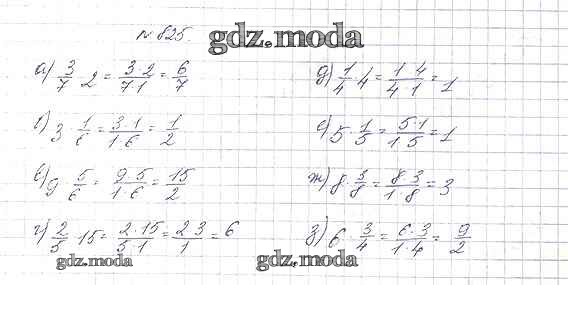 № 825. gdz.moda
а) 3/7 · 2 = 3·2/7·1 = 6/7
б) 3 · 1/6 = 3·1/1·6 = 1/2
в) 9 · 5/6 = 9·5/1·6 = 15/2
г) 2/5 · 15 = 2·15/5·1 = 2·3/1 = 6
gdz.moda
д) 1/4 · 4 = 1·4/4·1 = 1
е) 5 · 1/5 = 5·1/1·5 = 1
ж) 8 · 3/8 = 8·3/1·8 = 3
з) 6 · 3/4 = 6·3/1·4 = 9/2
gdz.moda